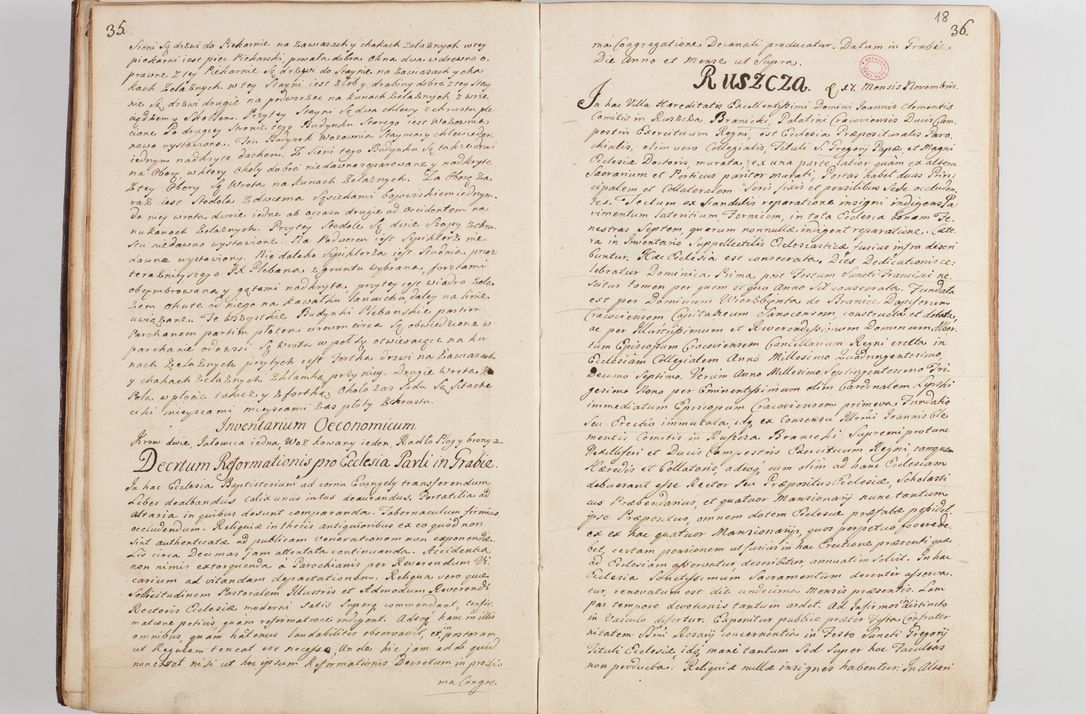 35.
Sieni Są drzwi do Piekarnie na zawiasach y chakach żelaznych w tey
piekarni iest piec Piekarski, prwala dobra Okna dwa w drewno o.
prawne z tey Piekarnie Są drzwi do Staynie na zawiasach y cha
kach żelaznych. w tey Stayni iest żłoby drabiny dobre z tey Stay
nie Są drzwi drugie na podworzec na kunach żelaznych z wrze
ciądzem y Skoblem. Przy tey Stayni Są dwa chlewy z chrustu ple
cione. Po drugiey Stronie tego Budynku Starego iest Wozownia
nowo wystawiona. Ten Budynek Wozownia Staynia y chlewy ieden
iednym nadkryte dachem. Z Sieni tego Budynku Są także drzwi
na Oborę, w ktory Okoły dobre niedawno reparowane y nadkryte.
Z tey Obory Są Wrota na kunach żelaznych. Za Oborą za
raz iest Stodoła z dwiema Sąsiekami boiowiskiem iednym
do niey wrota dwoie iedne ab occasu drugie ad Occidentem na
nukanach żelaznych. Przy tey Stodole Są dwie Szopy z chru
stu niedawno wystawione. Na Podworcu iest Spichlerz nie
dawno wystawiony. Nie daleko Spichlerza iest Studnia przez
teraznieyszego JX Plebana z gruntu wybrana, forsztami
obcembrowana y gątami nadkryta, przy tey iest wiadro żela
zem okute, od niego na kawałku łancucha daley na linie
uwiązane. Te wszystkie Budynki Plebanskie partim
Parchanem partim płotem circum circa Są obwiedzione w
parchanie od wsi Są wrota w poły otwieraiące na ku
nach żelaznych przy tych iest fortka drzwi na zawiasach
y chakach żelaznych z klamką przy niey. Drugie Wrota od
Pola w płocie także y z fortką. Około zas Sadu Są Sztache
ciki mieyscami mieyscami zas płoty z chrustu.
Inventarium Oeconomicum.
Krow dwie, Jałowica iedna Woz kowany ieden Radło Pług y brony 2.
Decrtum Reformationis pro Ecclesia Parli in Grabie.
In hac Ecclesia Baptisterium ad cornu Evangely transferendum
Liber dealbandus calix unus intus deaurandus. Portatilia ad
altaria in quibus desunt comparanda. Tabernaculum firmius
occludendum. Reliquiæ in thecis antiquioribus ex eo quod non
Sint authenticatæ ad publicam venerationem non exponendæ.
Lis circa Decimas jam attentata continuanda. Accidentia
non nimis extorquenda a Parochianis per Reverendum Vi-
carium ad vitandam depactationem. Reliqua vero quæ
Sollicitudinem Pastoralem Illustris et Admodum Reverendi
Rectoris Ecclesiæ moderni Satis Superq commendant, confir-
matione potius, quam reformatione indigent. Adeoq nam in illis
omnibus, quam hactenus laudabiliter observavit, et in posterum
ut Regulam teneat est necesse. Unde hic jam addi quid
non restat nisi ut hoc ipsum Reformationis Decretum in proxi-
ma Congre.
18
36.
ma Congregatione Decanali producatur. Datum in Grabie
Die Anno et Mense ut Supra.
RUSZCZA. d 17. Mensis Novembris.
In hac Villa Hæreditatis Excellentissimi Domini Joannis Clementis
Comitis in Ruszcza Branicki, Palatini Cracoviensis Ducis Cam-
pestris Exercituum Regni, est Ecclesia Præposituralis Paro-
chialis, olim vero Collegialis, Tituli S. Gregory Papæ et Magni
Ecclesiæ Doctoris murata, ex una parte latior quam ex altera
Sacrarium et Porticus pariter murati, Portas habet duas Prin-
cipalem et Collateralem Seris fixis et pensilibus Sede occluden-
tes. Tectum ex Scandulis reparatione insigni indigens Pa-
vimentum lateritium Fornicem, in tota Ecclesia bonam Fe-
nestras Septem, quarum nonnullæ indigent reparatione. Cæte-
ra in Inventario Suppellectilis Ecclesiasticæ fusius infra descri
buntur. Hæc Ecclesia est consecrata. Dies Dedicationis ce-
lebratur Dominica Prima post Festum Sancti Francisci ne-
scitur tamen per quem et quo Anno Sit consecrata. Fundata
est per Dominum Wierzbęnta de Branice Dapiferum
Cracoviensem Capitaneum Sanocensem, constructa et dotata,
ac per Illustrissimum et Reverendissimum Dominum Alber-
tum Episcopum Cracoviensem Cancellarium Regni erecta in
Ecclesiam Collegialem Anno Millesimo Quadringentesimo,
Decimo Septimo. Verum Anno Millesimo, Septingentesimo Tri-
gesimo Nono per Eminentissimum olim Cardinalem Lipski
immediatum Episcopum Cracoviensem primeva Fundatio
Seu Erectio immutata, idq ex consensu Illmi Joannis Cle
mentis Comitis in Ruszcza Branicki Supremi protunc
Vexilliferi et Ducis Campestris Exercituum Regni tamquam
Hæredis et Collatoris, adeoq cum olim ad hanc Ecclesiam
debuerant esse Rector Seu Præpositus Ecclesiæ, Scholasti
cus Præbendarius, et quatuor Mansionarij nunc tantum
ipse Præpositus, omnem dotem Ecclesiæ præfatæ possidet
ex ex hac quatuor Mansionarijs, quos perpetuo fovere de-
bet certam pensionem ut fusius in hac Erectione præsenti quæ
ad Ecclesiam asservatur, describitur annuatim Solvit. In hac
Ecclesia Sanctissimum Sacramentum decenter asserva-
tur, renovatum est die undecima mensis præsentis. Lam
pas tempore devotionis tantum ardet. Ad Infirmos distincto
in Vasculo defertur. Exponitur publice præter Festa Confrater
nitatem Ssmi Rosarij concernentia in Festo Sancti Gregorij
Tituli Ecclesiæ, idq mane tantum Sed Super hoc Facultas
non producta. Reliquiæ nullæ insignes habentur. In Altari